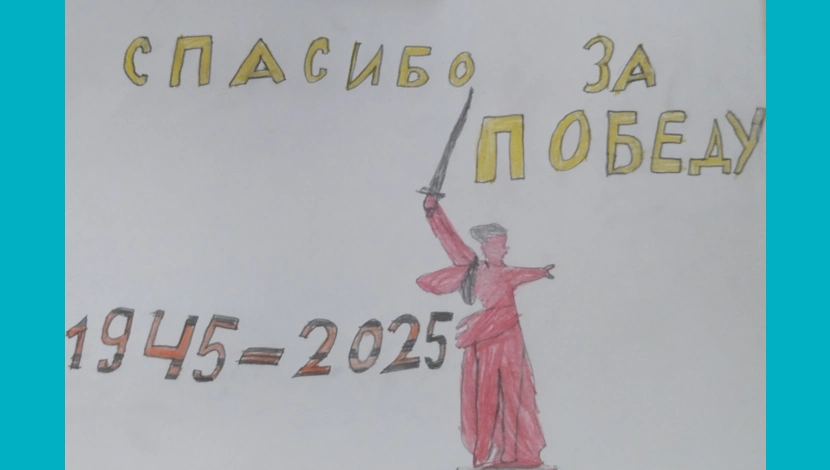 СПАСИБО ЗА
ПОБЕДУ
1945=2025